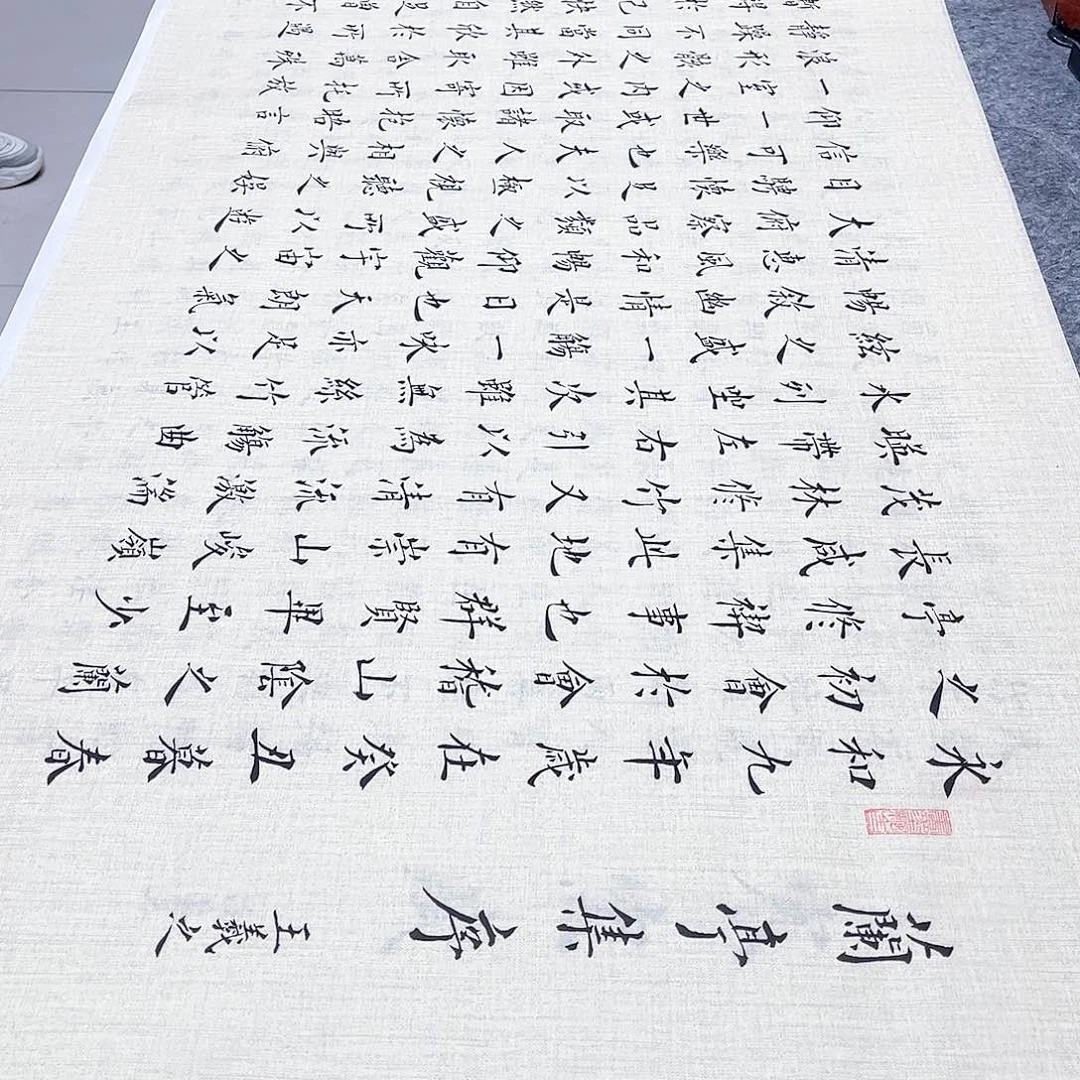 蘭亭集序 王羲之
永和九年歲在癸丑暮春
之初會於會稽山陰之蘭
亭修禊事也群賢畢至少
長咸集此地有崇山峻嶺
茂林修竹又有清流激湍
暎帶左右引以為流觴曲
水列坐其次雖無絲竹管
絃之盛一觴一詠亦足以
暢敘幽情是日也天朗氣
清惠風和暢仰觀宇宙之
大俯察品類之盛所以遊
目騁懷足以極視聽之娛
信可樂也夫人之相與俯
仰一世或取諸懷抱晤言
一室之內或因寄所託放
浪形骸之外雖取舍萬殊
靜躁不同當其欣於所遇
暫得於己快然自足曾不